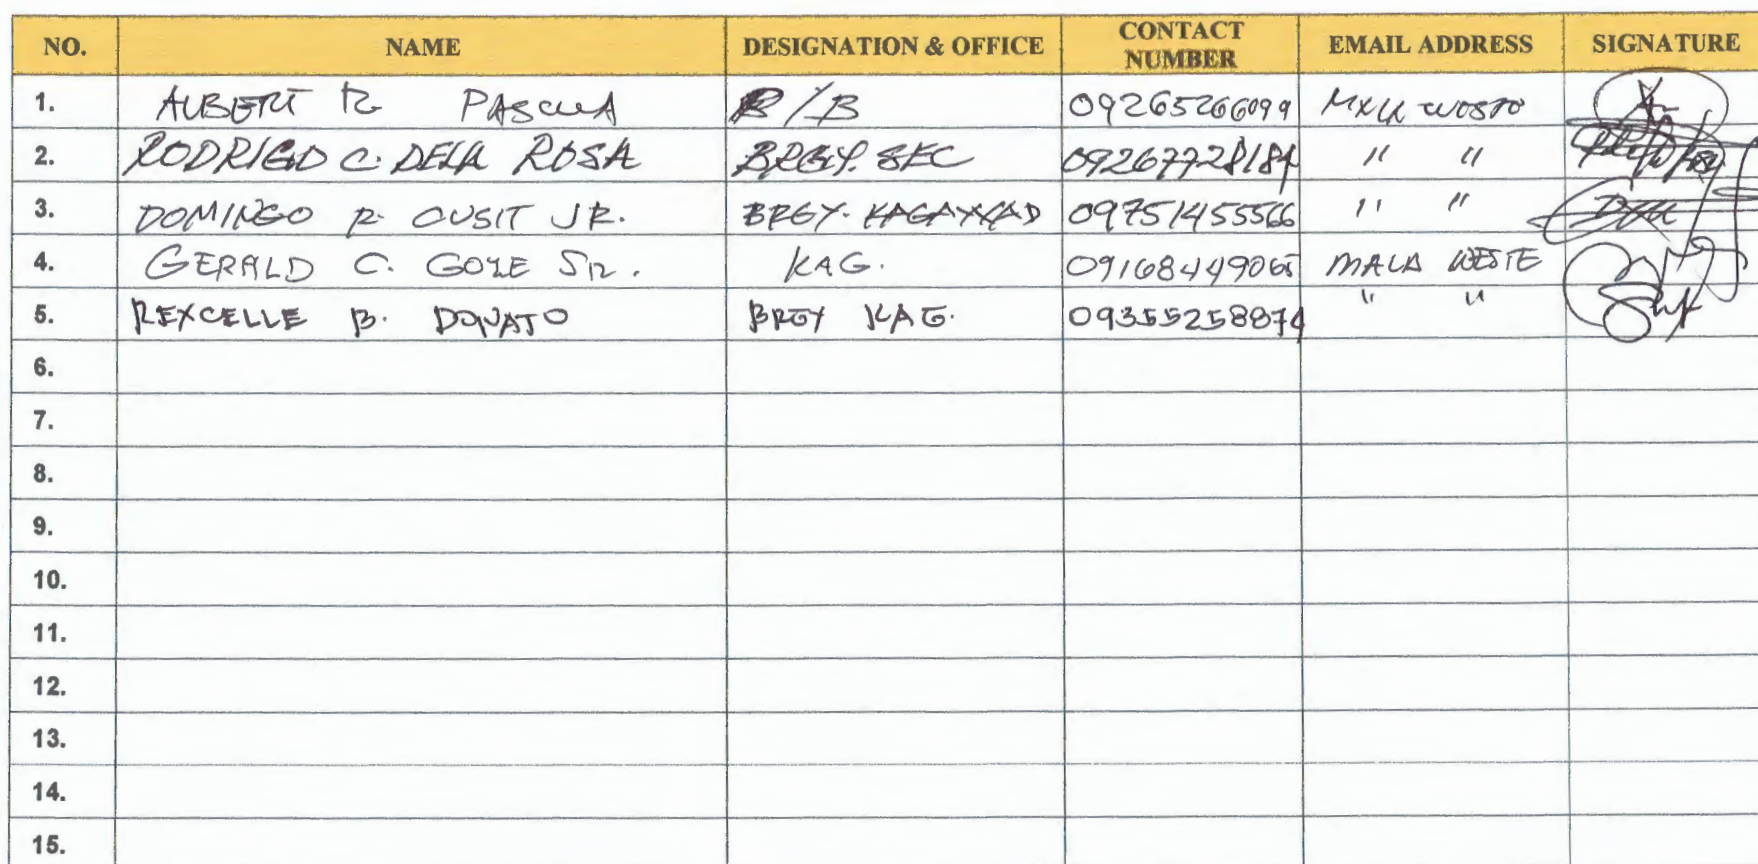 NO. NAME DESIGNATION & OFFICE CONTACT NUMBER EMAIL ADDRESS SIGNATURE
1. ALBERT R PASCUA P/B 09265266099
2. RODRIGO C. DELA ROSA BRGY. SEC 09267728184 " "
3. DOMINGO P. CUSIT JR. BRGY. KAGAWAD 09751455566 " "
4. GERALD C. GOZE SR. KAG. 09168449065 MALA WESTE
5. REXCELLE B. DONATO BRGY KAG. 09355258874 " "
6.
7.
8.
9.
10.
11.
12.
13.
14.
15.